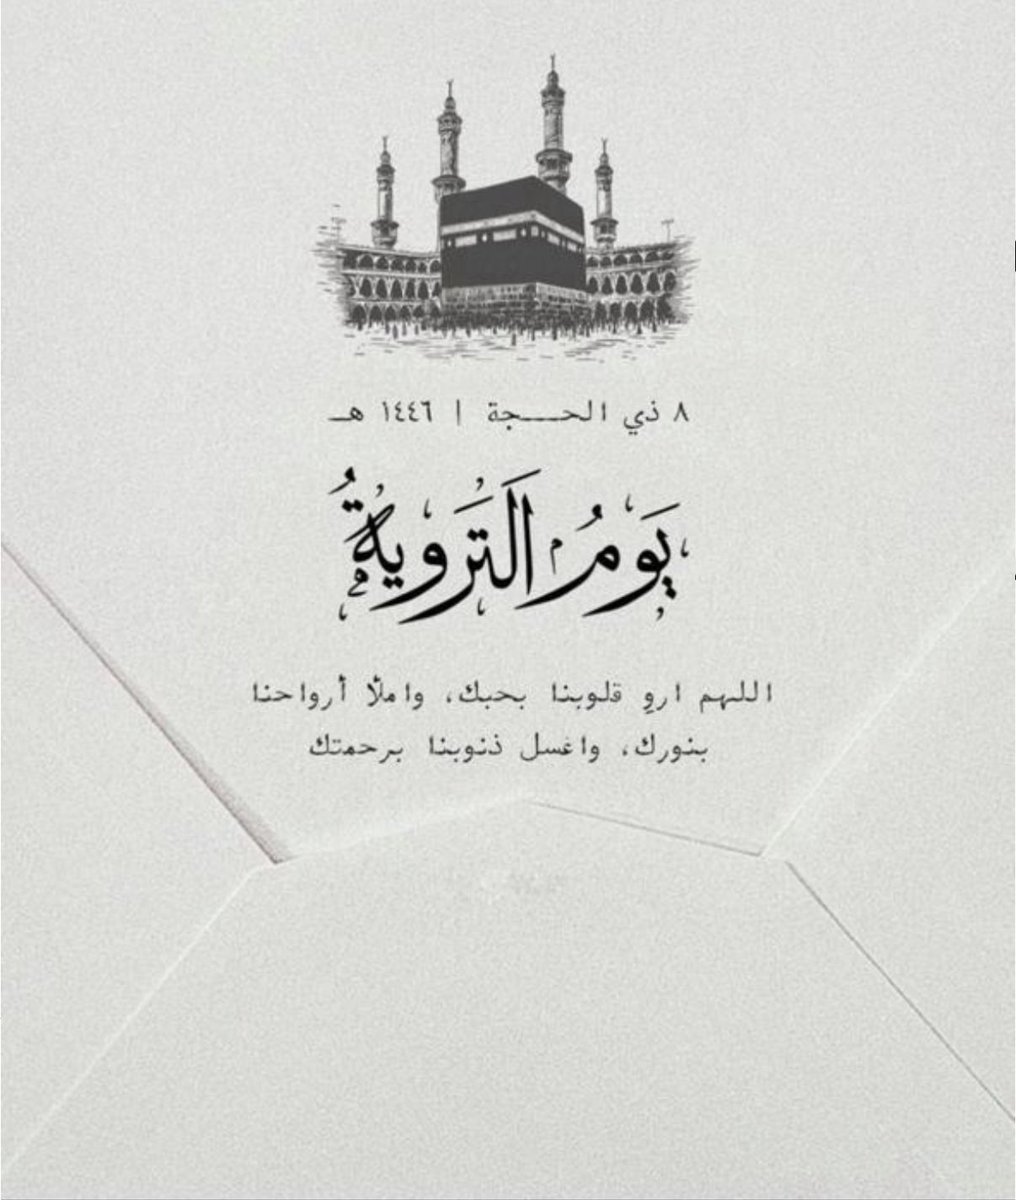 ٨ ذي الحـــجة | ١٤٤٦ هـ
يَومُ التَّروِيةُ
اللهم اروِ قلوبنا بحبك، واملأ أرواحنا
بنورك، واغسل ذنوبنا برحمتك